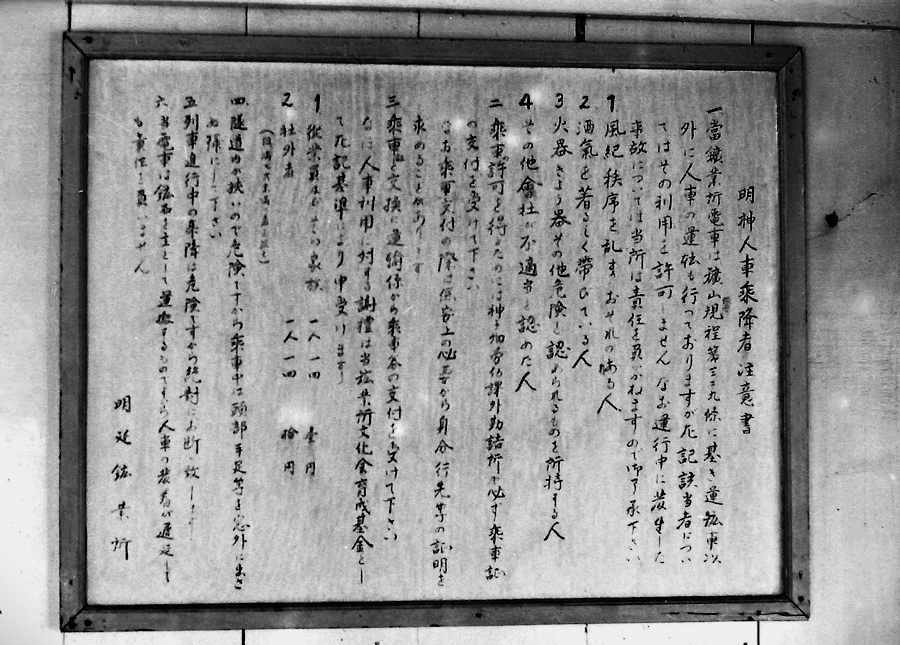 明神人車乘降者注意書
一 當鑛業所電車は鑛山規程第三十九條に基き運鉱車以
外に人車の運転も行っておりますが左記該当者につい
てはその利用を許可しません なお運行中に發生した
事故については当所は責任を負いかねますので御了承下さい
1 風紀秩序を乱すおそれの有る人
2 酒氣を著るしく帶びている人
3 火器きよう器その他危険と認められるものを所持する人
4 その他會社が不適当と認めた人
二 乘車許可を得るためには神子畑労務課外勤詰所で必ず乘車証
の交付を受けて下さい
なお乘車証交付の際は保安上の必要から身分行先等の証明を
求めることがあります
三 乘車証と交換に運輸係から乘車券の交付を受けて下さい
なお人車利用に対する謝禮は当鉱業所文化会育成基金とし
て左記基準により申受けます
1 従業員及びその家族 一人一回 壹円
2 社外者 一人一回 拾円
四 隧道内が狹いので危険ですから乘車中は頭部手足等を窓外に出さ
ぬ様にして下さい
五 列車進行中の乘降は危険ですから絶対にお断り致します
六 当電車は鉱石を主として運搬するものですから人車の発着が遅延して
も責任を負いません
明延鉱業所